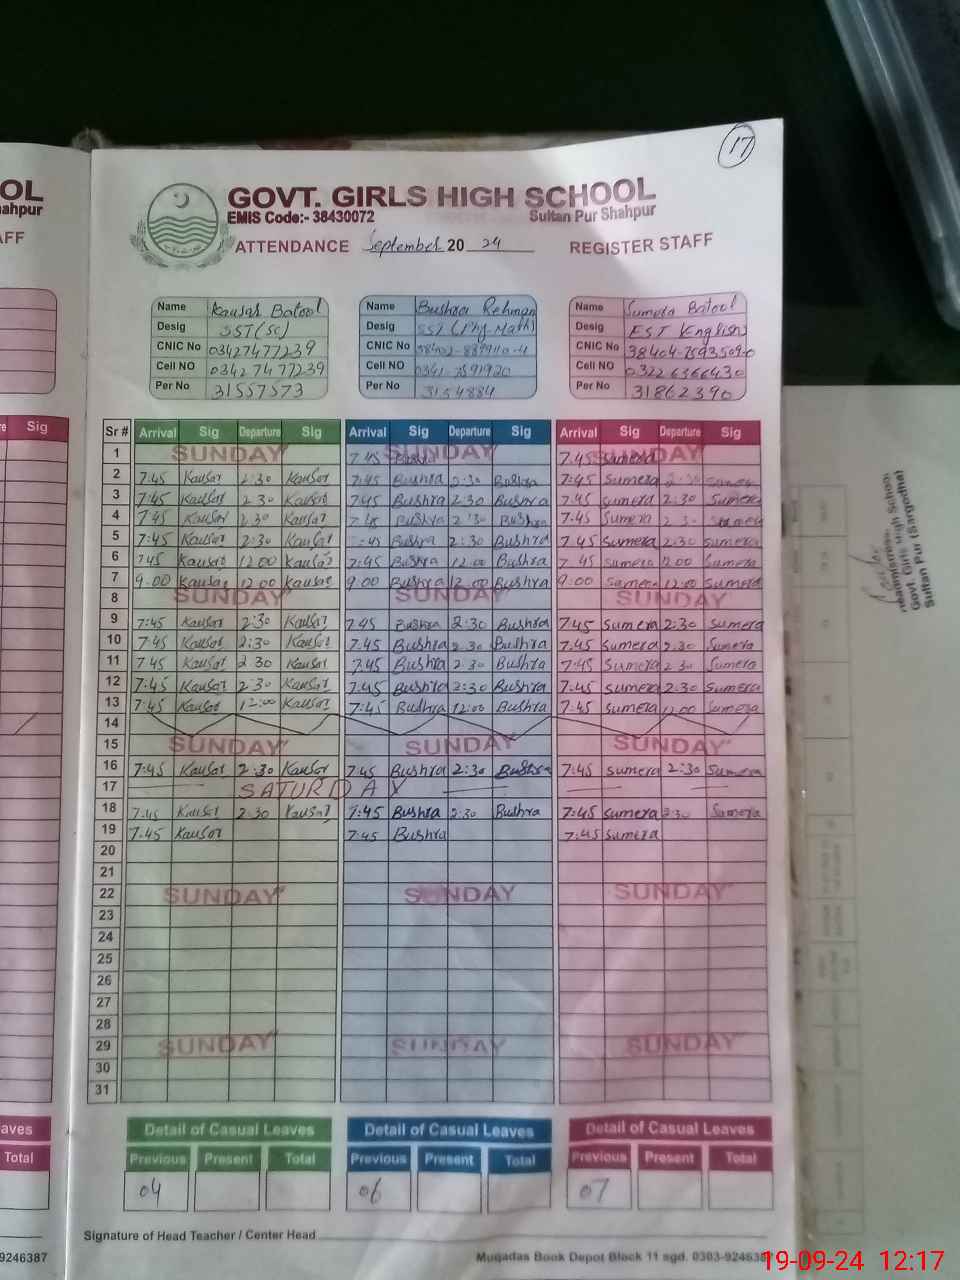 17
OOL
GOVT. GIRLS HIGH SCHOOL
ahpur
EMIS Code:- 38430072 Sultan Pur Shahpur
AFF
ATTENDANCE September 20 24 REGISTER STAFF
Name Kausar Batool Name Bushra Rehman Name Sumera Batool
Desig SST(SC) Desig SST (Phy-Math) Desig EST (English)
CNIC No 03427477239 CNIC No CNIC No
Cell NO 03427477239 Cell NO 0341-7591920 Cell NO 03226366430
Per No 31557573 Per No 3154884 Per No 31862390
Sig Sr # Arrival Sig Departure Sig Arrival Sig Departure Sig Arrival Sig Departure Sig
1 SUNDAY 7:45 SUNDAY 7:45 Sumera SUNDAY
2 7:45 Kausar 2:30 Kausar 7:45 Bushra 2:30 Bushra 7:45 Sumera 2:30 Sumera
3 7:45 Kausar 2:30 Kausar 7:45 Bushra 2:30 Bushra 7:45 Sumera 2:30 Sumera
4 7:45 Kausar 2:30 Kausar 7:45 Bushra 2:30 Bushra 7:45 Sumera 2:30 Sumera
5 7:45 Kausar 2:30 Kausar 7:45 Bushra 2:30 Bushra 7:45 Sumera 2:30 Sumera
6 7:45 Kausar 12:00 Kausar 7:45 Bushra 12:00 Bushra 7:45 Sumera 12:00 Sumera
7 9:00 Kausar 12:00 Kausar 9:00 Bushra 12:00 Bushra 9:00 Sumera 12:00 Sumera
8 SUNDAY SUNDAY SUNDAY
9 7:45 Kausar 2:30 Kausar 7:45 Bushra 2:30 Bushra 7:45 Sumera 2:30 Sumera
10 7:45 Kausar 2:30 Kausar 7:45 Bushra 2:30 Bushra 7:45 Sumera 2:30 Sumera
11 7:45 Kausar 2:30 Kausar 7:45 Bushra 2:30 Bushra 7:45 Sumera 2:30 Sumera
12 7:45 Kausar 2:30 Kausar 7:45 Bushra 2:30 Bushra 7:45 Sumera 2:30 Sumera
13 7:45 Kausar 12:00 Kausar 7:45 Bushra 12:00 Bushra 7:45 Sumera 12:00 Sumera
14
15 SUNDAY SUNDAY SUNDAY
16 7:45 Kausar 2:30 Kausar 7:45 Bushra 2:30 Bushra 7:45 Sumera 2:30 Sumera
17 SATURDAY
18 7:45 Kausar 2:30 Kausar 7:45 Bushra 2:30 Bushra 7:45 Sumera 2:30 Sumera
19 7:45 Kausar 7:45 Bushra 7:45 Sumera
20
21
22 SUNDAY SUNDAY SUNDAY
23
24
25
26
27
28
29 SUNDAY SUNDAY SUNDAY
30
31
eaves Detail of Casual Leaves Detail of Casual Leaves Detail of Casual Leaves
Total Previous Present Total Previous Present Total Previous Present Total
04 06 07
Signature of Head Teacher / Center Head
9246387 Muqadas Book Depot Block 11 sgd. 0303-9246387
Headmistress
Govt. Girls High School
Sultan Pur (Sargodha)
19-09-24 12:17